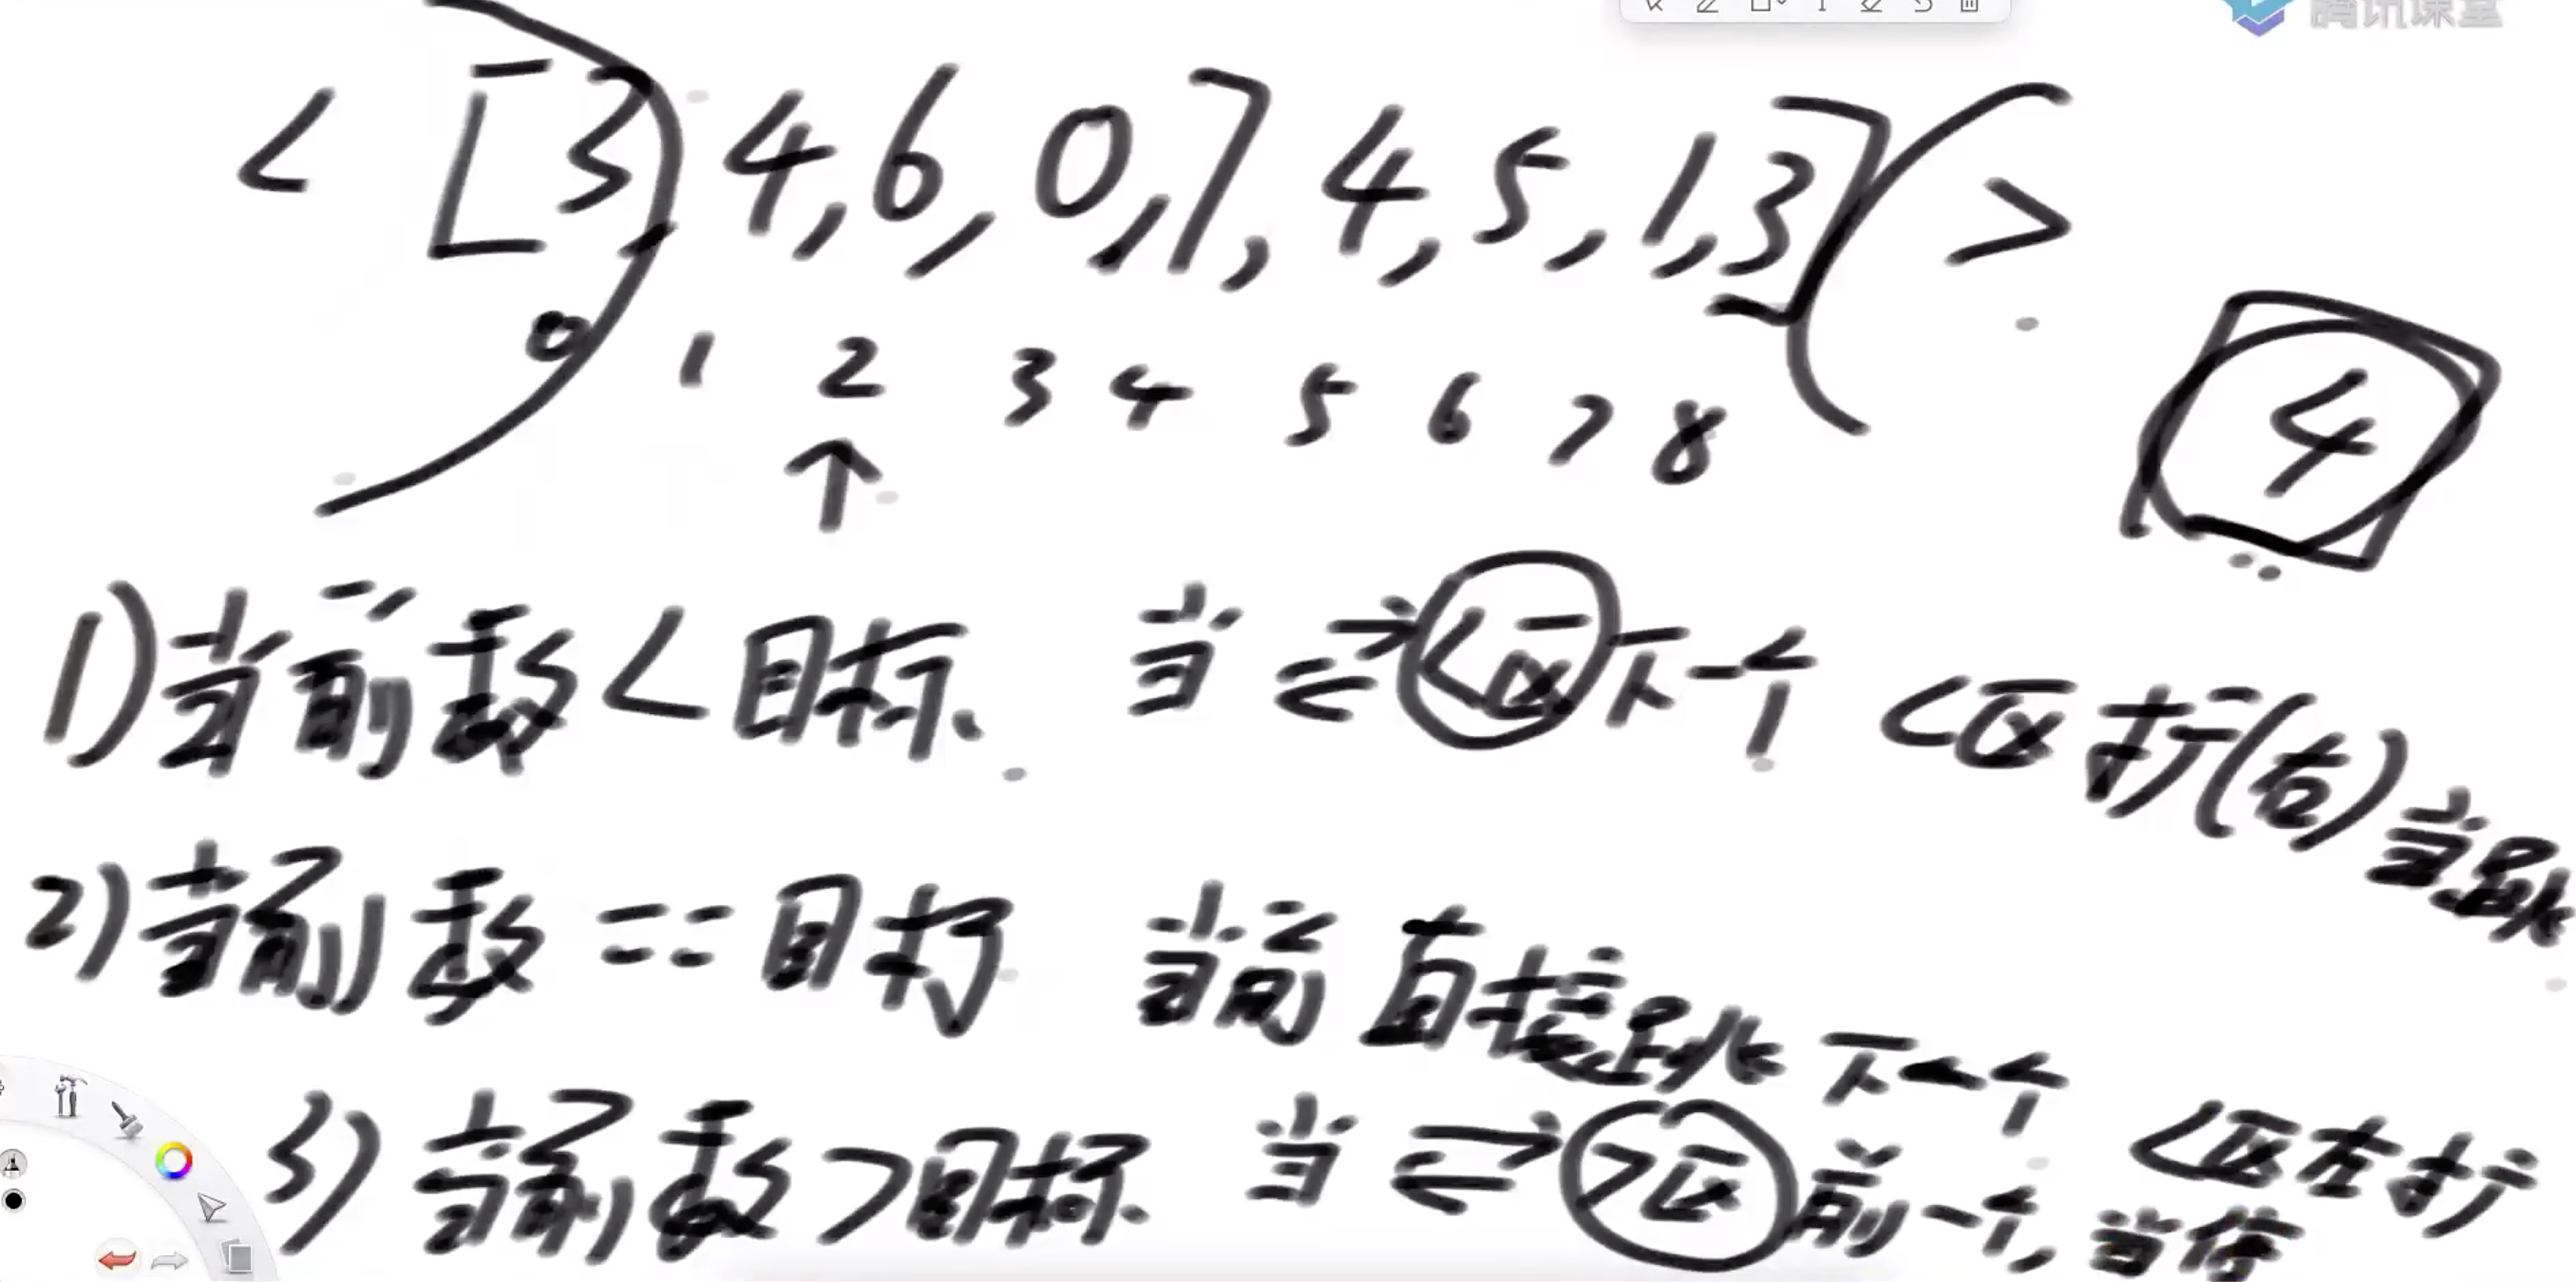 腾讯课堂
< [3) 4,6,0,7,4,5,1,3] ( >
0 1 2 3 4 5 6 7 8
↑
4
1) 当前数 < 目标、 当 ⇄ <区下一个 <区扩(右) 当跳
2) 当前数 == 目标 当前 直接跳下一个
3) 当前数 > 目标、 当 ⇄ >区前一个, 当停 <区右扩